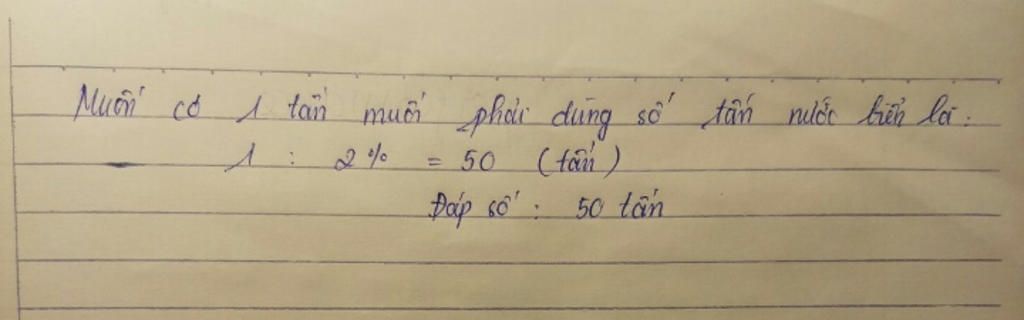 Muốn có 1 tấn muối phải dùng số tấn nước biển là:
1 : 2% = 50 (tấn)
Đáp số: 50 tấn